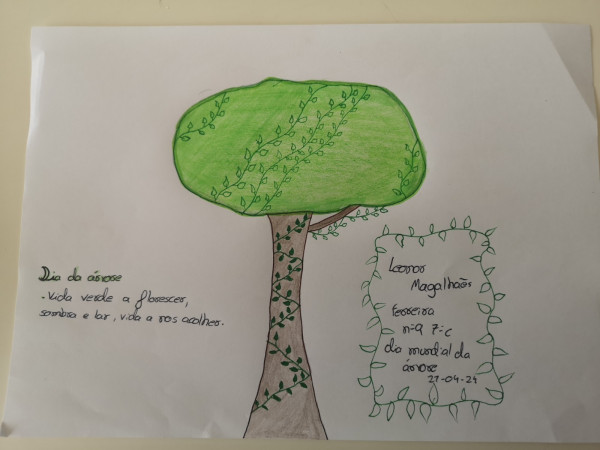 Dia da árvore
- Vida verde a florescer,
sombra e lar, vida a nos acolher.
Leonor
Magalhães
Ferreira
nº9 7ºc
dia mundial da
árvore
21-04-24